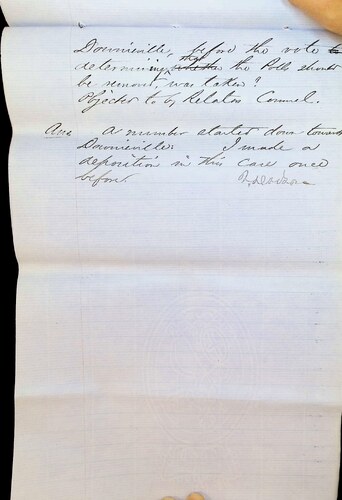 Downieville, before the vote to
determining that the Polls should
be removd, was taken?
Objected to by Relators Counsel.
Ans A number started down towards
Downieville. I made a
deposition in this case once
before.